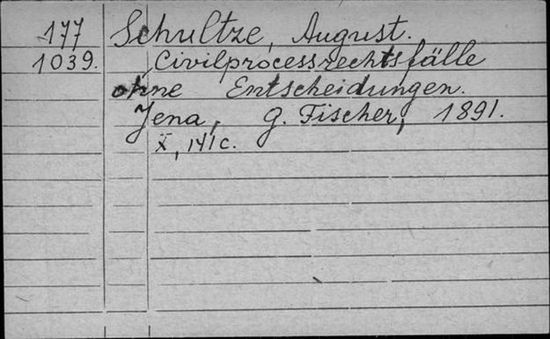 177 Schultze, August.
1039. Civilprocessrechtsfälle
ohne Entscheidungen.
Jena, G. Fischer, 1891.
X, 141 c.